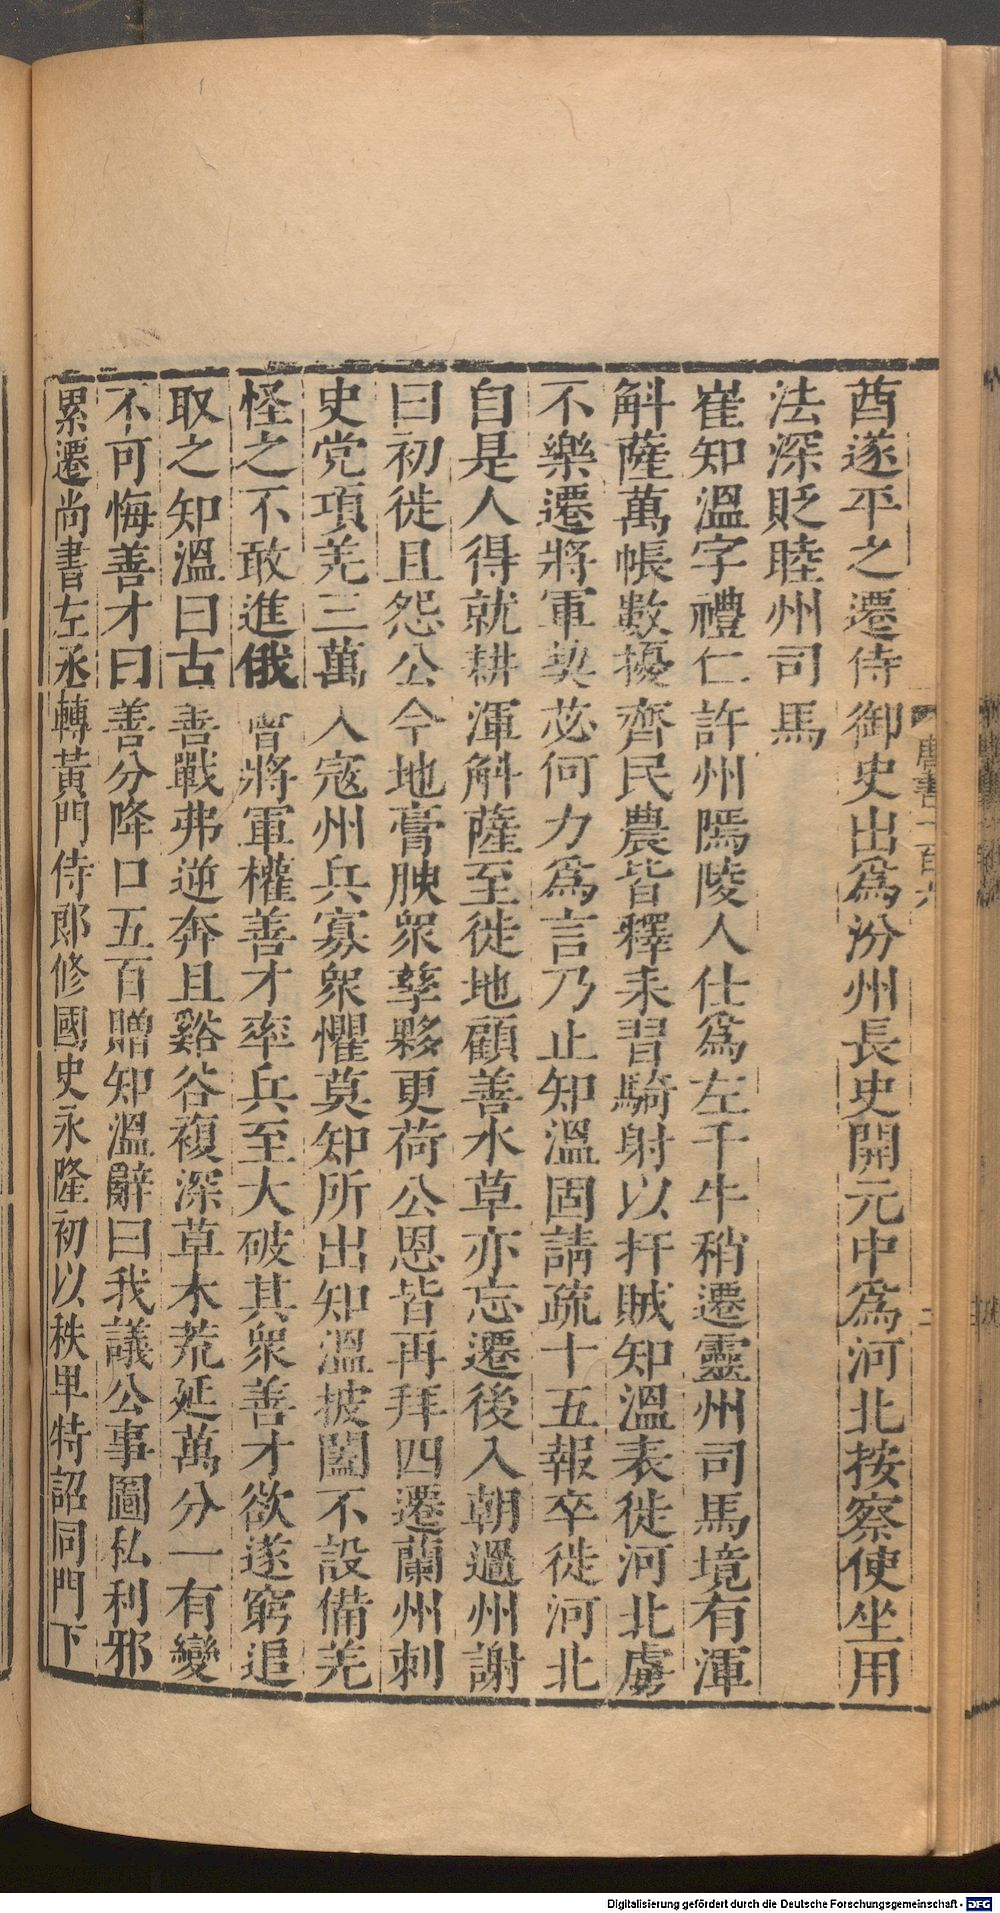 酋遂平之遷侍御史出爲汾州長史開元中爲河北按察使坐用
法深貶睦州司馬
崔知溫字禮仁許州隝陵人仕爲左千牛稍遷靈州司馬境有渾
斛薩萬帳數擾齊民農皆釋耒習騎射以扞賊知溫表徙河北虜
不樂遷將軍契苾何力爲言乃止知溫固請疏十五報卒徙河北
自是人得就耕渾斛薩至徙地顧善水草亦忘遷後入朝過州謝
曰初徙且怨公今地膏腴衆孳夥更荷公恩皆再拜四遷蘭州刺
史党項羌三萬入寇州兵寡衆懼莫知所出知溫披闔不設備羌
怪之不敢進俄會將軍權善才率兵至大破其衆善才欲遂窮追
取之知溫曰古善戰弗逆奔且谿谷複深草木荒延萬分一有變
不可悔善才曰善分降口五百贈知溫辭曰我議公事圖私利邪
累遷尚書左丞轉黃門侍郎修國史永隆初以秩卑特詔同門下
唐書一百六
Digitalisierung gefördert durch die Deutsche Forschungsgemeinschaft - DFG